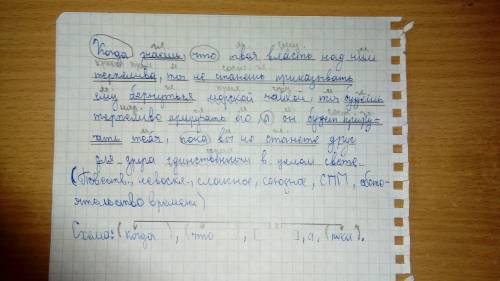 Когда знаешь, что твоя власть над ним
терпелива, ты не станешь приказывать
ему вернуться морской чайкой, ты будешь
терпеливо приручать его, а он будет приру-
чать тебя, пока вы не станете друг
для друга единственными в целом свете.
(Повеств., невоскл., сложное, союзное, СПП, обсто-
ятельство времени)
Схема: (когда ), (что ), [ ], а, (пока ).